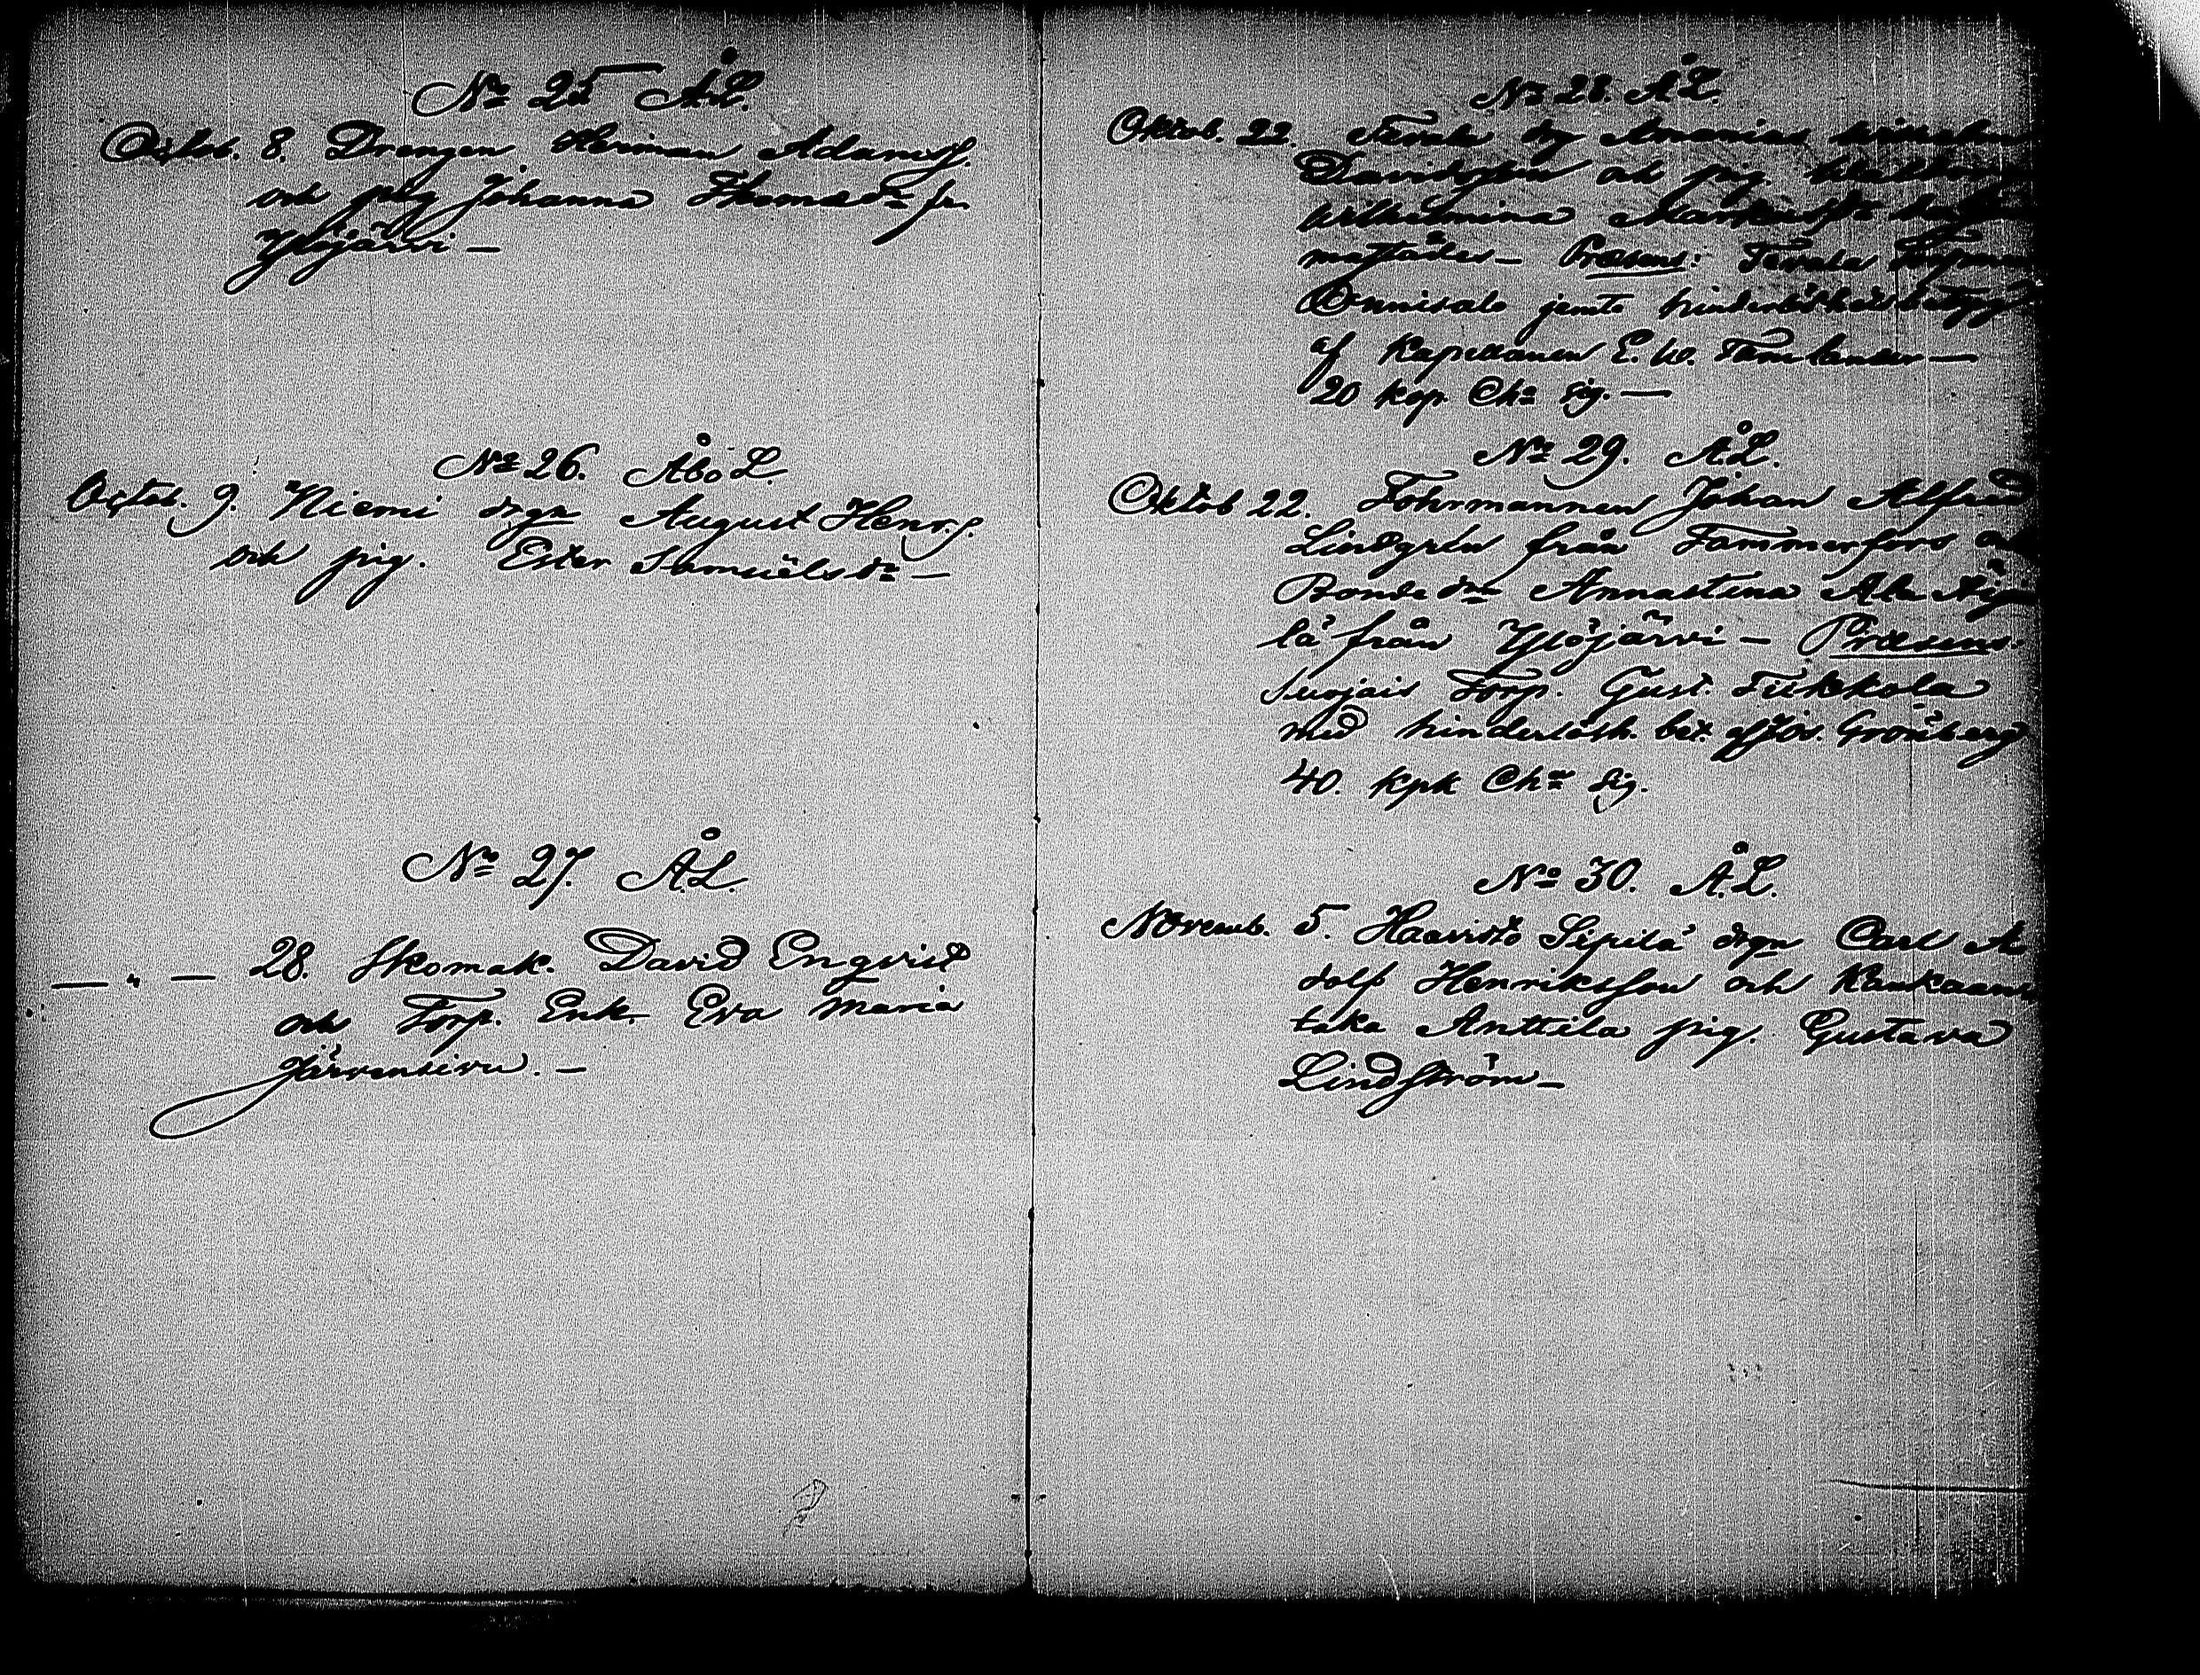 No 25 ÅL.
Octob. 8. Drengen Herman Adamsf.
och pig Johanna Thomasdr fr.
Ylöjärvi —
No 26. ÅboL.
Octob. 9. Niemi drgn August Henr.s.
och pig. Ester Samuelsdr —
No 27. ÅL.
— " — 28. Skomak. David Engvist
och Torp. Enk. Eva Maria
Järvensivu. —
No 28. ÅL.
Oktob. 22. drg Ananias
Davidsson och pig
Wilhelmina
Præsens:
jemte
af Kapellanen E. W.
20 kop. Cha sig. —
No 29. ÅL.
Oktob 22. Fohrmannen Johan Alfred
Lindgren från Tammerfors
Bonde dr Annastina
lä från Ylöjärvi — Præsens.
Torp. Gust. Tiikkola
med hinderlösh. bet. af Grönberg
40. kpk Cha sig.
No 30. ÅL.
Novemb. 5. Haavisto Sipilä drgn Carl A
dolf Henriksson och
taka Anttila pig. Gustava
Lindström —